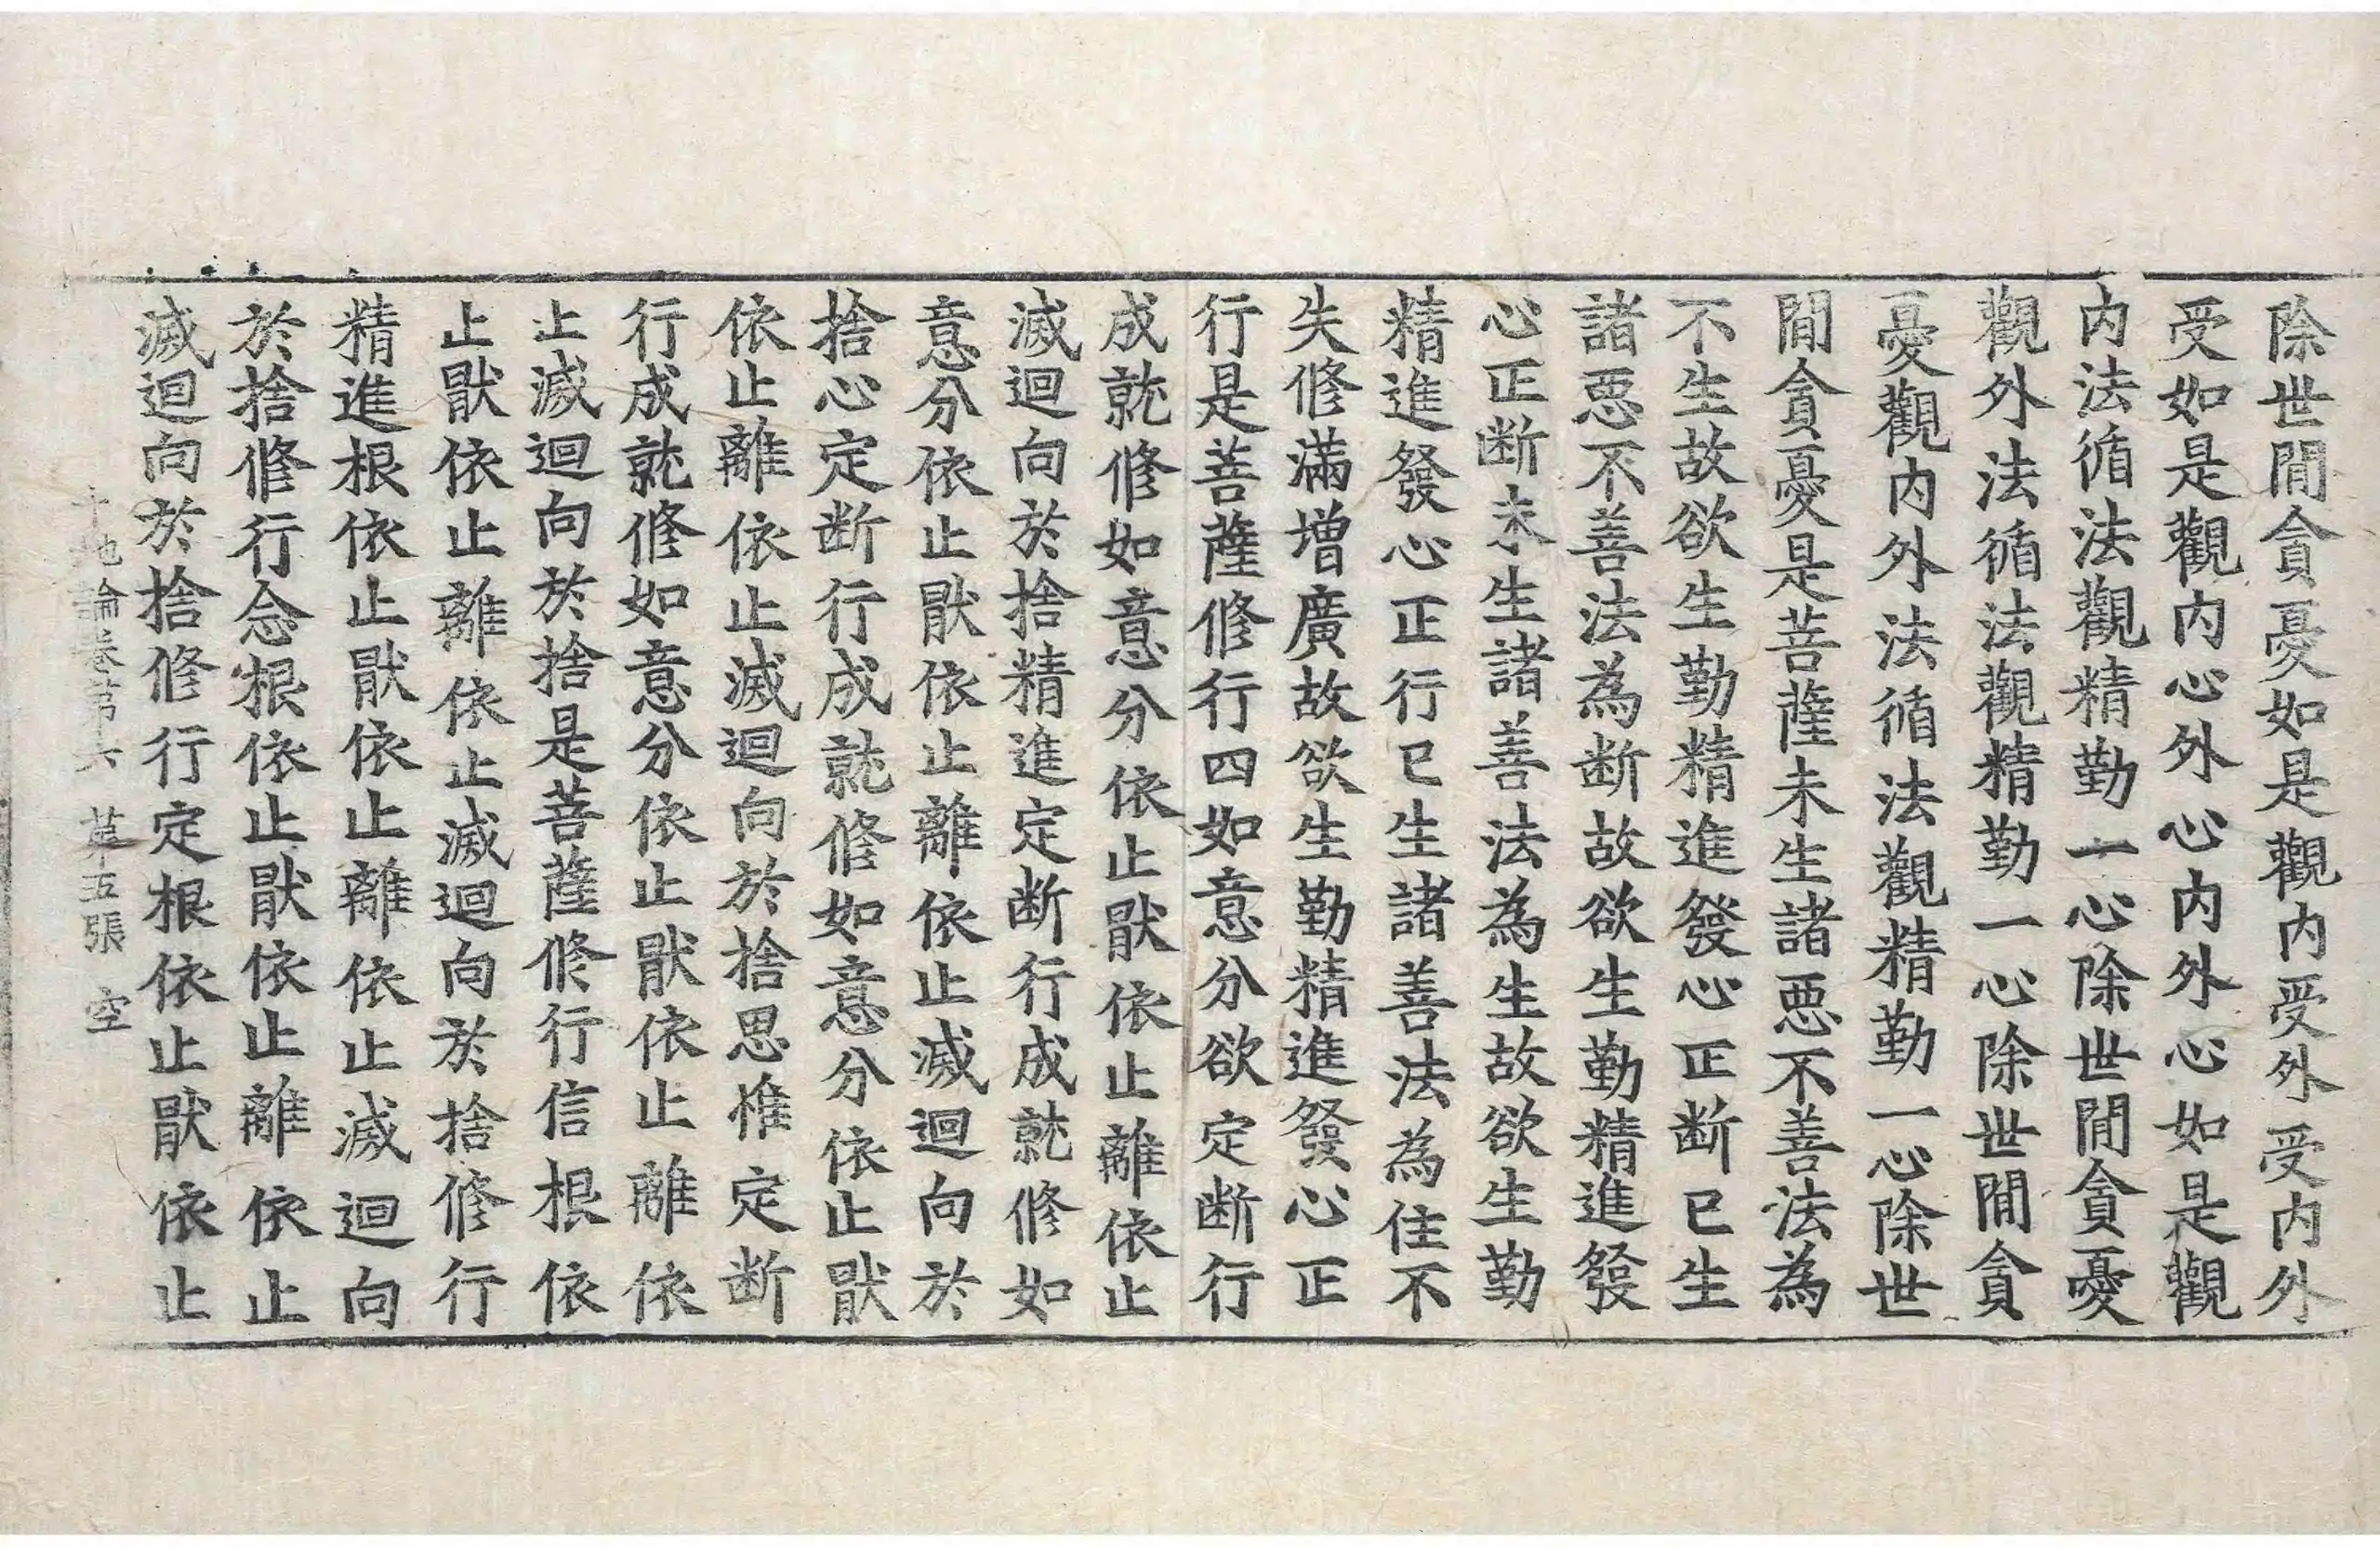 除世閒貪憂如是觀内受外受内外
受如是觀内心外心内外心如是觀
内法循法觀精勤一心除世閒貪憂
觀外法循法觀精勤一心除世閒貪
憂觀内外法循法觀精勤一心除世
閒貪憂是菩薩未生諸惡不善法為
不生故欲生勤精進發心正断已生
諸惡不善法為断故欲生勤精進發
心正断未生諸善法為生故欲生勤
精進發心正行已生諸善法為住不
失修滿增廣故欲生勤精進發心正
行是菩薩修行四如意分欲定断行
成就修如意分依止猒依止離依止
滅迴向於捨精進定断行成就修如
意分依止猒依止離依止滅迴向於
捨心定断行成就修如意分依止猒
依止離依止滅迴向於捨思惟定断
行成就修如意分依止猒依止離依
止滅迴向於捨是菩薩修行信根依
止猒依止離依止滅迴向於捨修行
精進根依止猒依止離依止滅迴向
於捨修行念根依止猒依止離依止
滅迴向於捨修行定根依止猒依止
十地論卷第六 第五張 空